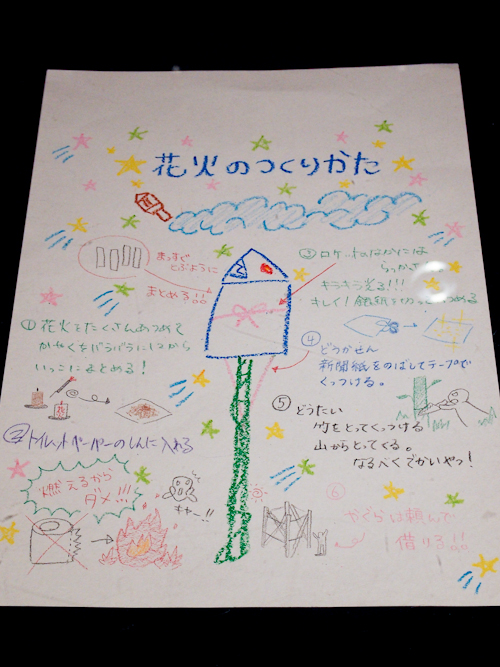 花火のつくりかた
まっすぐ
とぶように
まとめる!!
①花火をたくさんあつめて
かやくをバラバラにしてから
いっこにまとめる!
花
②トイレットペーパーのしんに入れる
燃えるから
ダメ!!!
キャー!!
③ロケットのなかには
キラキラ光る!!!
キレイ!銀紙を切って
④
どうかせん
新聞紙をのばしてテープで
くっつける。
⑤どうたい
竹をとってくっつける
山からとってくる。
なるべくでかいやっ!
⑥
やぐらは頼んで
借りる!!